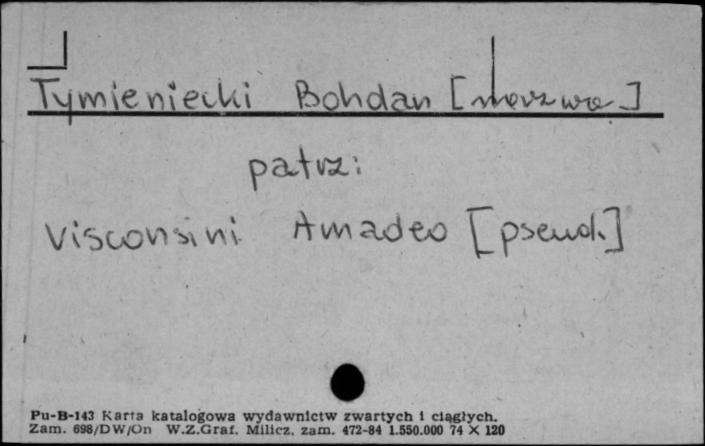 Tymieniecki Bohdan [nazwa]
patrz:
Visconsini Amadeo [pseud.]
Pu-B-143 Karta katalogowa wydawnictw zwartych i ciągłych.
Zam. 698/DW/On W.Z.Graf. Milicz. zam. 472-84 1.550.000 74 X 120